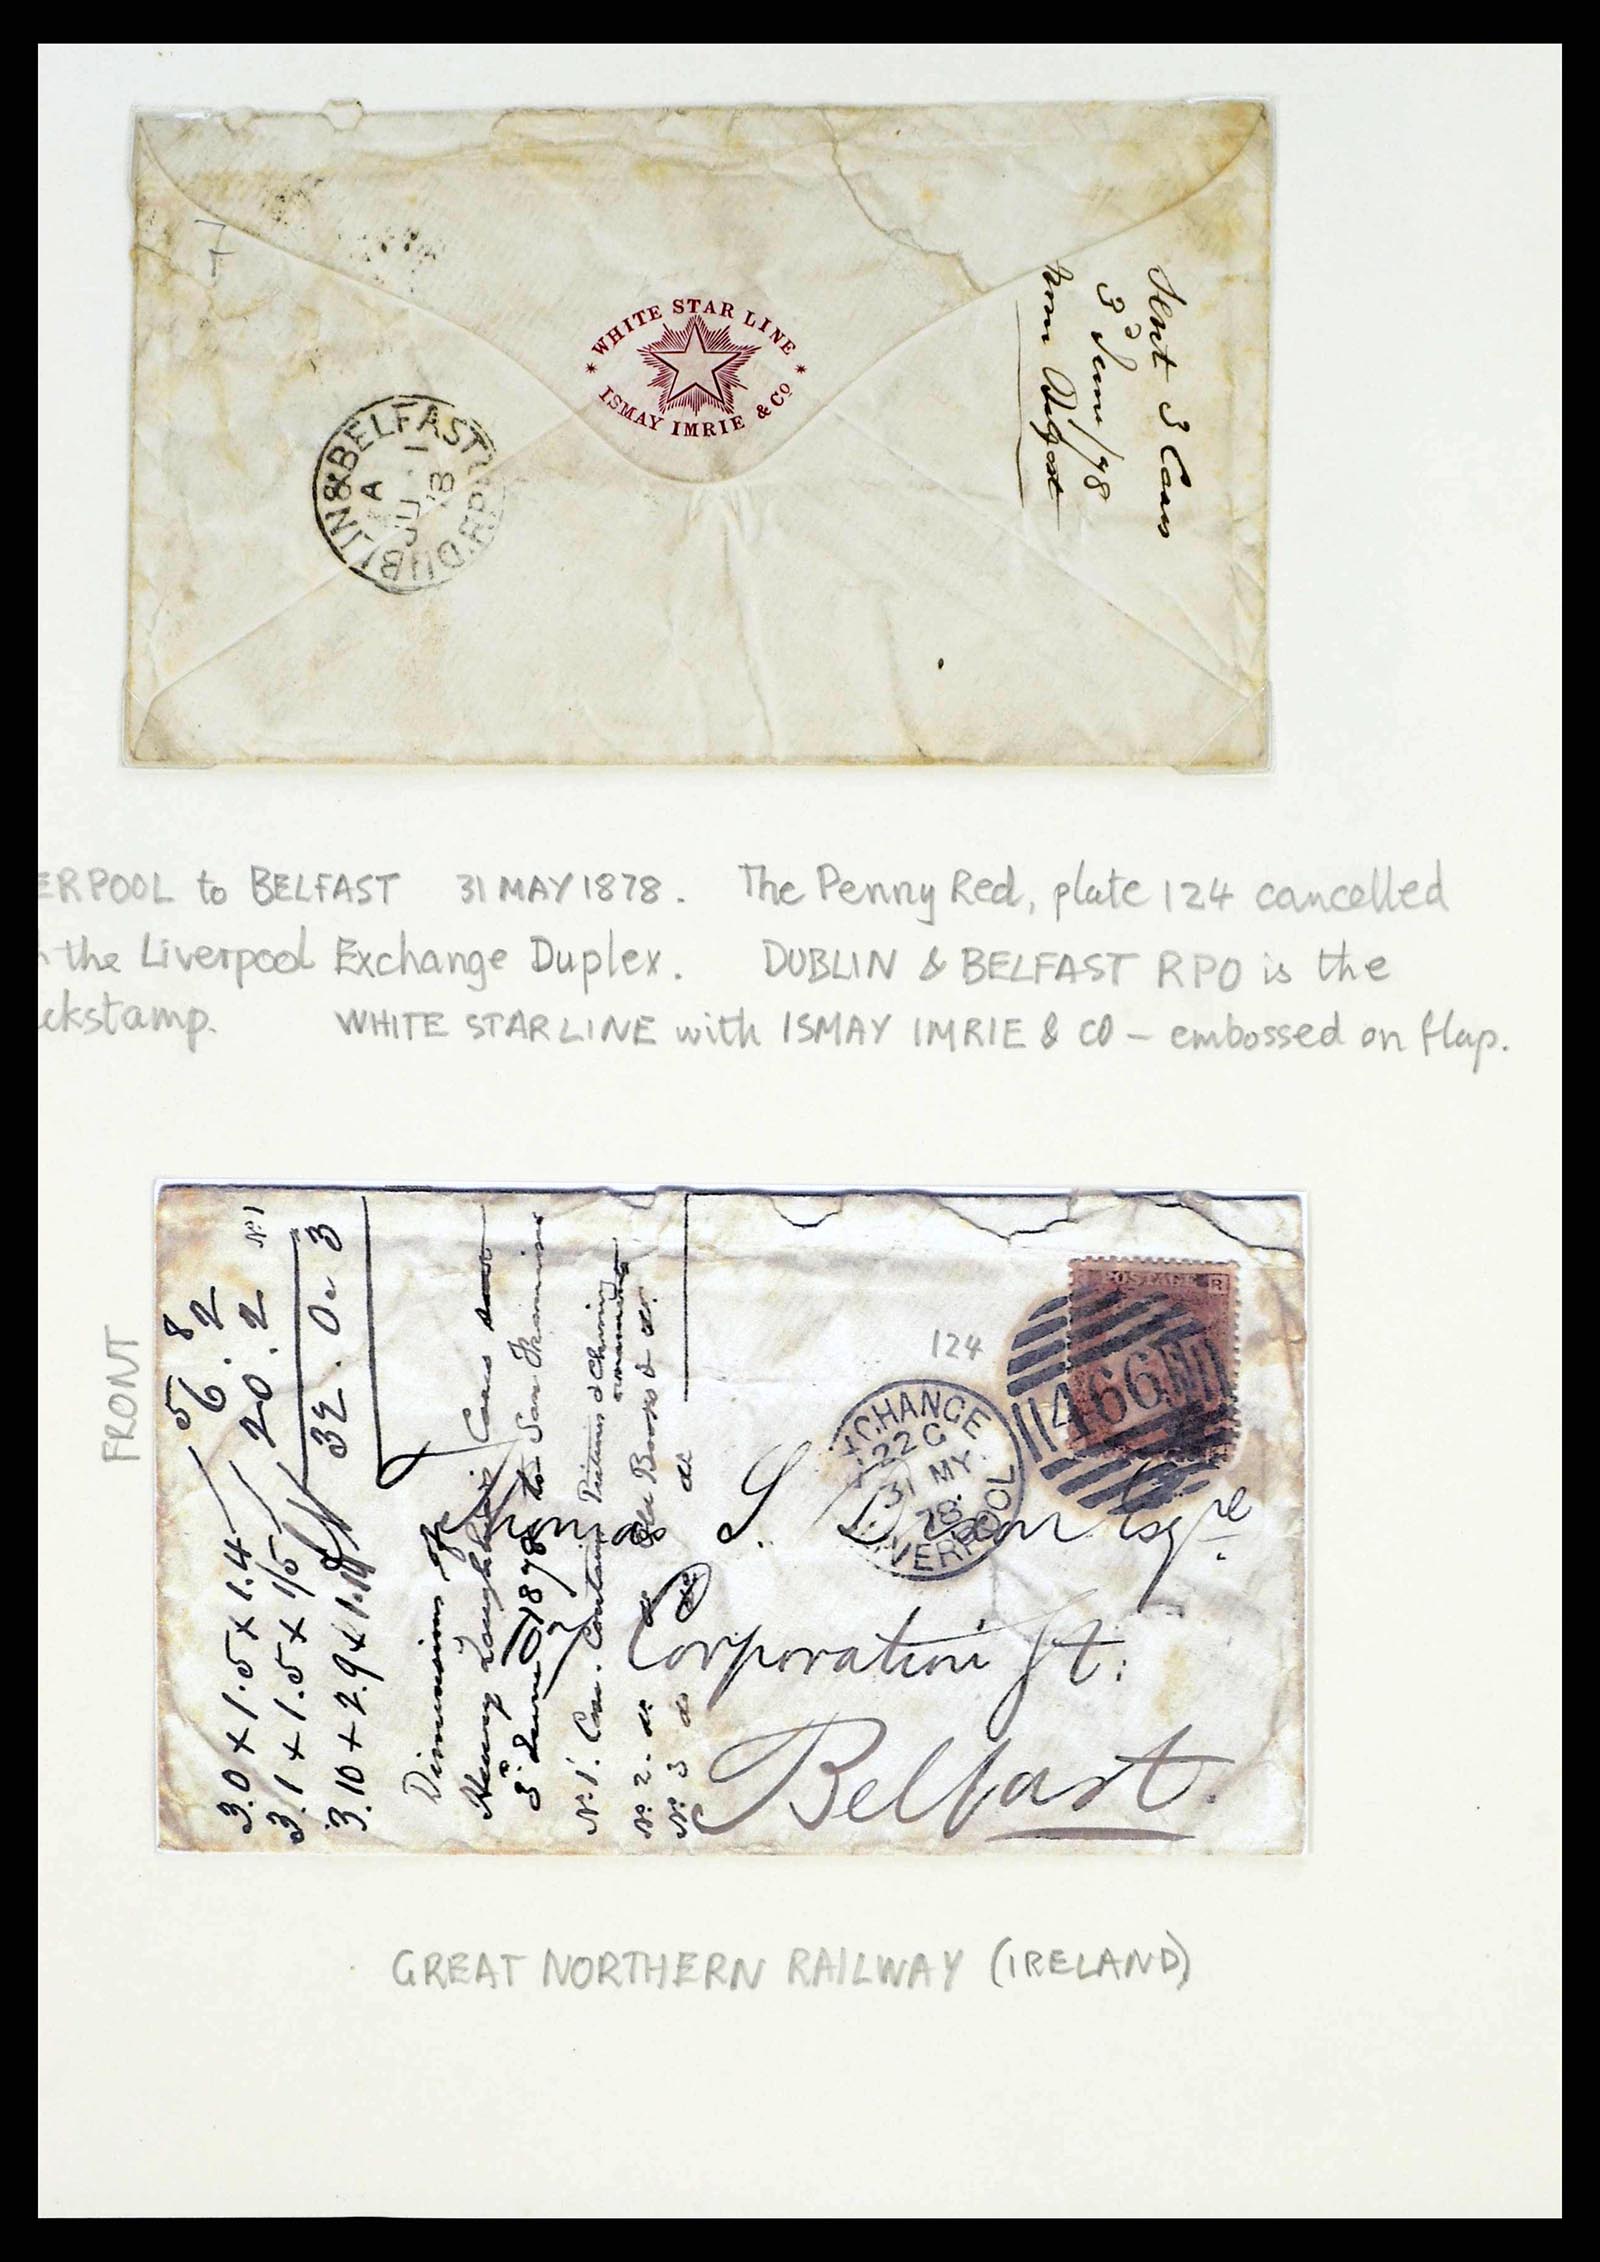 WHITE STAR LINE
ISMAY IMRIE & Co
DUBLIN & BELFAST R.P.O
A
JU 1
78
Sent 3 Cases
3d June/78
from Belfast
ERPOOL to BELFAST 31 MAY 1878. The Penny Red, plate 124 cancelled
the Liverpool Exchange Duplex. DUBLIN & BELFAST RPO is the
ckstamp. WHITE STAR LINE with ISMAY IMRIE & CO - embossed on flap.
FRONT
124
POSTAGE
R
466
EXCHANGE
22 C
31 MY
78
LIVERPOOL
Thomas S. Dixon Esqre
Corporation St:
Belfast.
3.0 x 1.5 x 1.4 5 8
3.1 x 1.5 x 1/5 6.2
3.10 x 2.9 x 20.2 No 1
32.0.3
Dimensions of
Henry Cases
3d June 1878 to San Francisco
No 1. Case. Contains Pictures & Chimney
No 2. do do Books & do
No 3 do do do
GREAT NORTHERN RAILWAY (IRELAND)